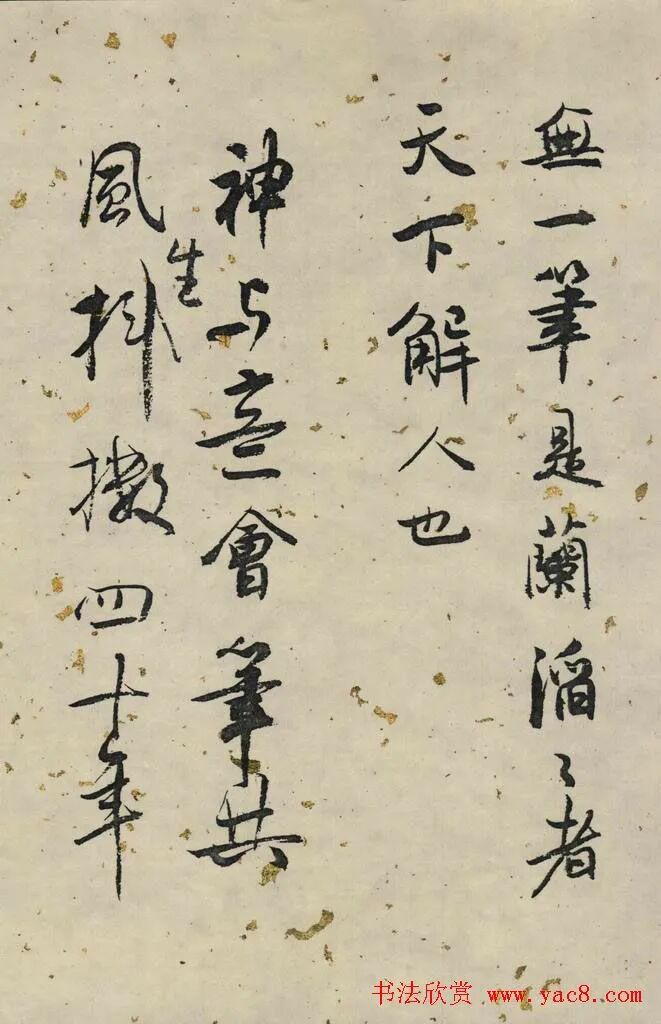 無一筆是蘭滔〻者
天下解人也
神与意會筆共
風生抖擻四十年
书法欣赏 www.yac8.com